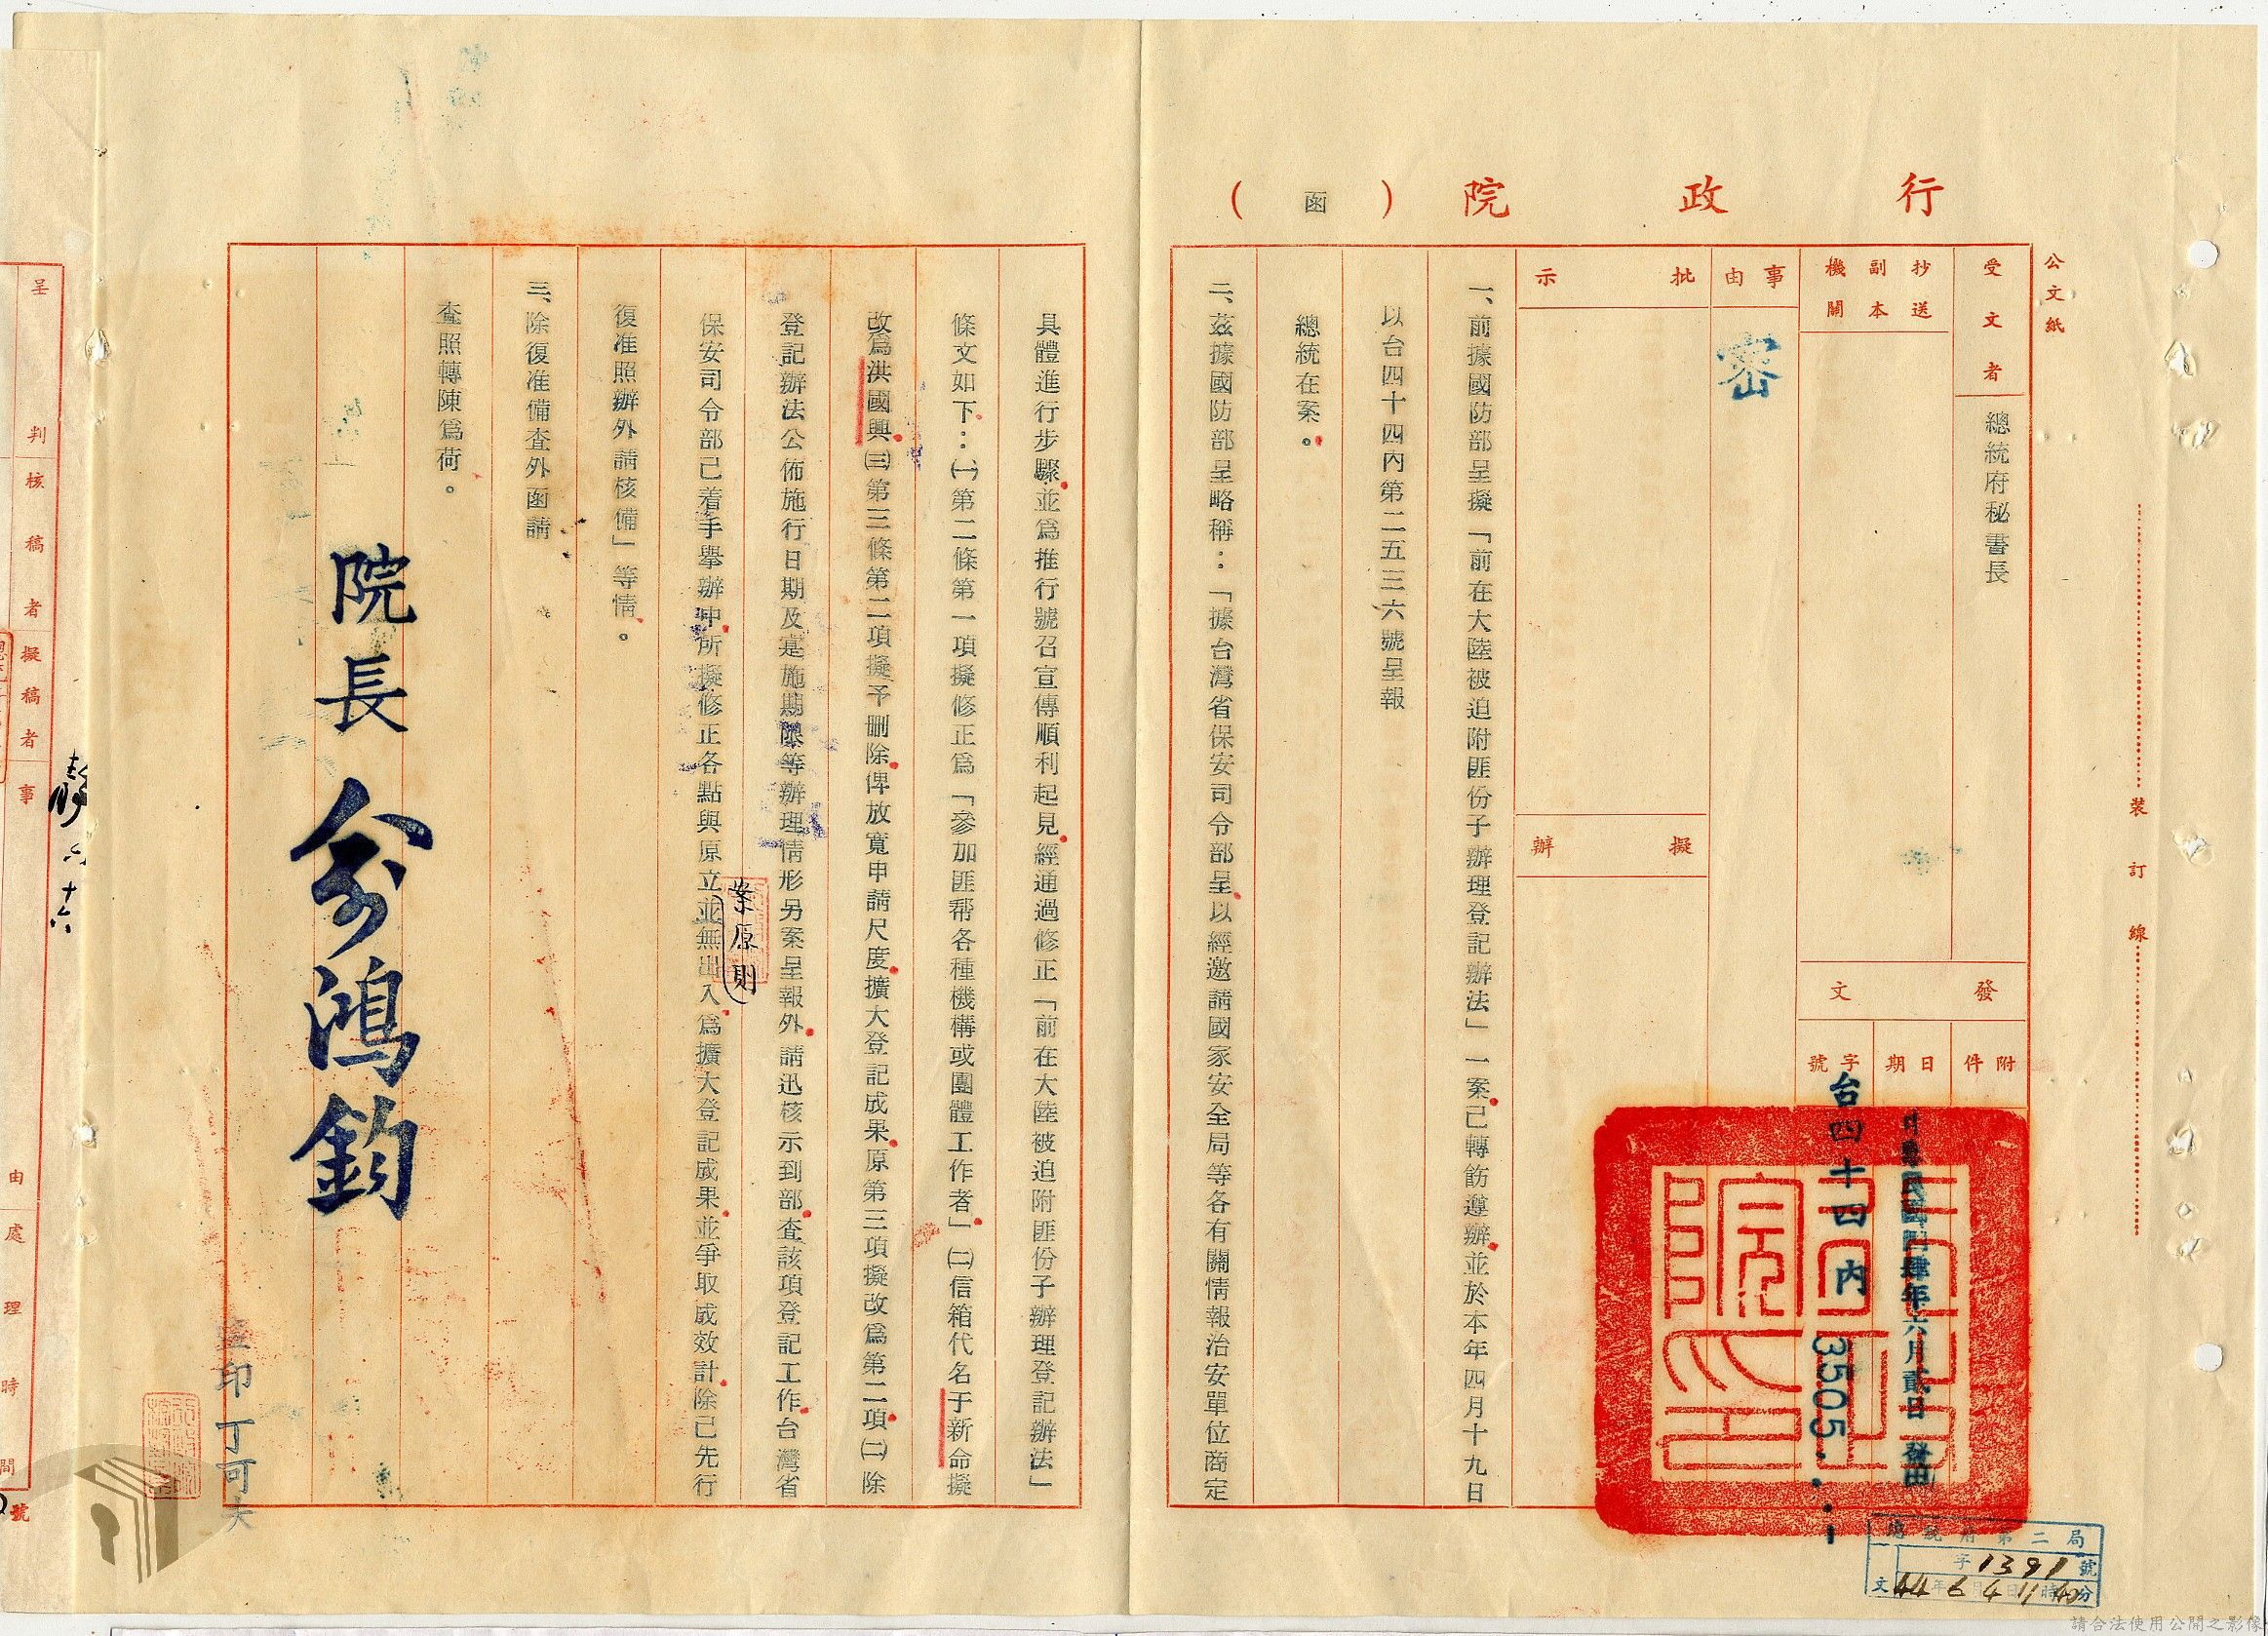 行政院（函）
公文紙
裝訂線
受文者 總統府秘書長
抄送副本機關
事由 密
批示
擬辦
發文
附件
日期 中華民國肆肆年六月貳日發出
字號 台四十四內3505
一、前據國防部呈擬「前在大陸被迫附匪份子辦理登記辦法」一案已轉飭遵辦並於本年四月十九日
以台四十四內第二五三六號呈報
總統在案。
二、茲據國防部呈略稱：「據台灣省保安司令部呈以經邀請國家安全局等各有關情報治安單位商定
具體進行步驟並爲推行號召宣傳順利起見經通過修正「前在大陸被迫附匪份子辦理登記辦法」
條文如下：㈠第二條第一項擬修正爲「參加匪幫各種機構或團體工作者」㈡信箱代名于新命擬
改爲洪國興㈢第三條第二項擬予刪除俾放寬申請尺度擴大登記成果原第三項擬改爲第二項㈡除
登記辦法公佈施行日期及寔施期限等辦理情形另案呈報外請迅核示到部查該項登記工作台灣省
保安司令部已着手舉辦中所擬修正各點與原立案原則並無出入爲擴大登記成果並爭取成效計除已先行
復准照辦外請核備」等情。
三、除復准備查外函請
查照轉陳爲荷。
院長 俞鴻鈞
監印 丁可大
總統府第二局
字1391號
文44年6月4日11時40分
呈
判核稿者
擬稿者
事由
處理時間
號
六十六
請合法使用公開之影像